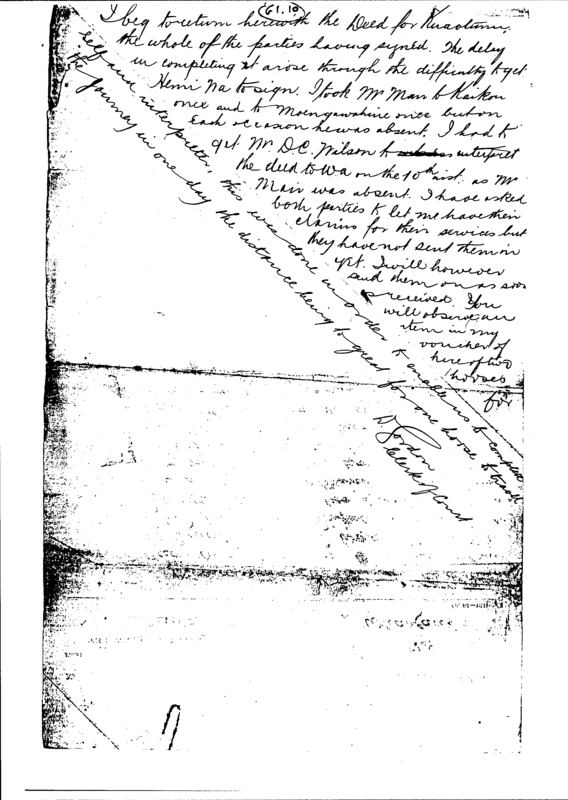 61.10
I beg to return herewith the Deed for
the whole of the parties having signed. The delay
in completing it arose through the difficulty to get
Hemi Na to sign. I took Mr Mair to Kaikou
once and to Moengawahine once but on
each occasion he was absent. I had to
get Mr D.C. Wilson to interpret
the deed to Wa on the 10th inst. as Mr
Mair was absent. I have asked
both parties to let me have their
claims for their services but
they have not sent them in
yet. I will however
send them on as soon
received. You
will observe an
item in my
voucher of
hire of two
horses
for
self and interpreter, this was done in order to enable us to complete
the journey in one day the distance being to great for one horse to travel
D. Gordon
Clerk of Court